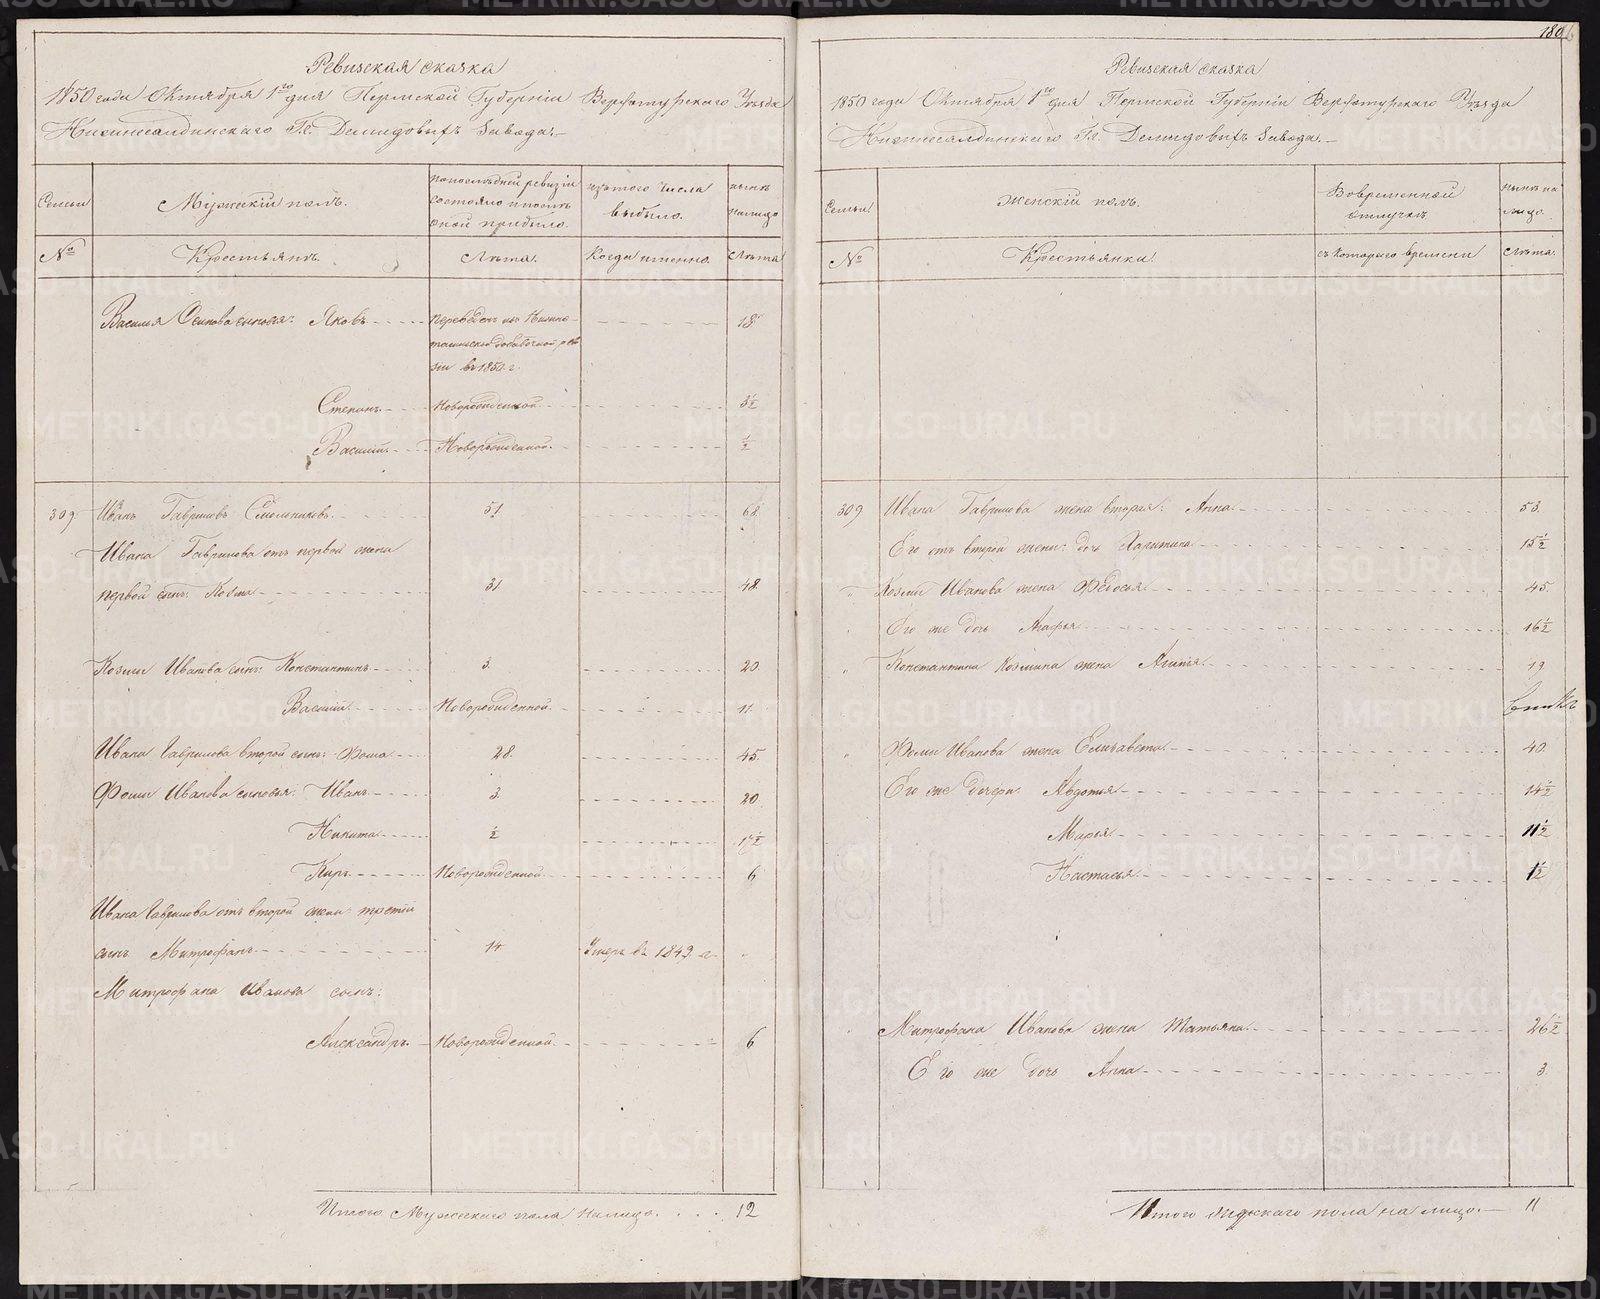 180
Ревизская сказка
1850 года Октября 1го дня Пермской Губерніи Верхотурскаго Уѣзда
Нижнесалдинскаго Г.г. Демидовыхъ Завода.
Семьи
Мужескій полъ.
По послѣдней ревизіи состояло и послѣ оной прибыло.
Изъ того числа выбыло.
Нынѣ на лицо
№
Крестьянъ.
Лѣта.
Когда именно.
Лѣта
Василья Осипова сыновья: Яковъ переведенъ въ 1850 г. 18
Степанъ новорожденной 3½
Василій Новорожденной ½
309 Иванъ Гавриловъ 51 68
Ивана Гаврилова отъ первой жены
первой сынъ: Козма 31 48
Козмы Иванова сынъ: Константинъ 3 20
Василій Новорожденной 11
Ивана Гаврилова второй сынъ: Фома 28 45
Фомы Иванова сыновья: Иванъ 3 20
Никита ½ 17½
Киръ Новорожденной 6
Ивана Гаврилова отъ второй жены третій
сынъ Митрофанъ 14 Умеръ въ 1849 г.
Митрофана Иванова сынъ:
Александръ Новорожденной 6
Итого Мужескаго пола налицо. 12
Ревизская сказка
1850 года Октября 1го дня Пермской Губерніи Верхотурскаго Уѣзда
Нижнесалдинскаго Г.г. Демидовыхъ Завода.
Семьи
Женскій полъ.
Во временной отлучкѣ
Нынѣ на лицо.
№
Крестьянки.
съ котораго времени
Лѣта.
309 Ивана Гаврилова жена вторая: Анна 53
Его отъ второй жены: дочь Харитина 15½
Козмы Иванова жена Федосья 45
Его же дочь Агафья 16½
Константина Козмина жена 19
Фомы Иванова жена Елизавета 40
Его же дочери: Авдотья 14½
Марья 11½
Настасья 1½
Митрофана Иванова жена Татьяна 26½
Его же дочь Анна 3
Итого женскаго пола на лицо. 11
METRIKI.GASO-URAL.RU